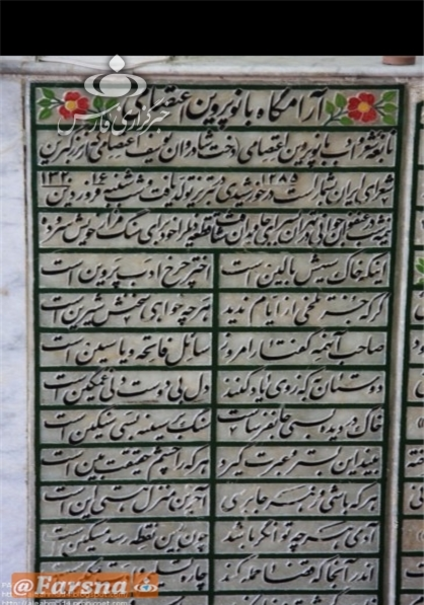 آرامگاه بانو پروین اعتصامی
خبرگزاری فارس
نابغه شعر و ادب بانو پروین اعتصامی دخت شادروان یوسف اعتصامی از بزرگترین
شعرای ایران بشمار است در ۱۲۸۵ خورشیدی در تبریز تولد یافت و شب شنبه ۱۶ فروردین ۱۳۲۰
در تهران قطعه زیر را خود برای سنگ مزار خویش سروده
اینکه خاک سیهش بالین است اختر چرخ ادب پروین است
گرچه جز تلخی از ایام ندید هر چه خواهی سخنش شیرین است
صاحب آنهمه گفتار امروز سائل فاتحه و یاسین است
دوستان به که ز وی یاد کنند دل بی دوست دلی غمگین است
خاک در دیده بسی جان فرساست سنگ بر سینه بسی سنگین است
بیند این بستر و عبرت گیرد هر که را چشم حقیقت بین است
هر که باشی و ز هر جا برسی آخرین منزل هستی این است
آدمی هر چه توانگر باشد چون بدین نقطه رسد مسکین است
اندر آنجا که قضا حمله کند چاره تسلیم
@Farsna